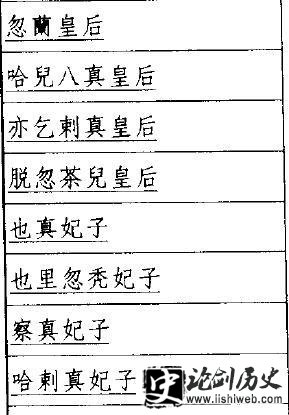 忽蘭皇后
哈兒八真皇后
亦乞剌真皇后
脱忽茶兒皇后
也真妃子
也里忽禿妃子
察真妃子
哈剌真妃子
史 论剑历史
www.lishiweb.com